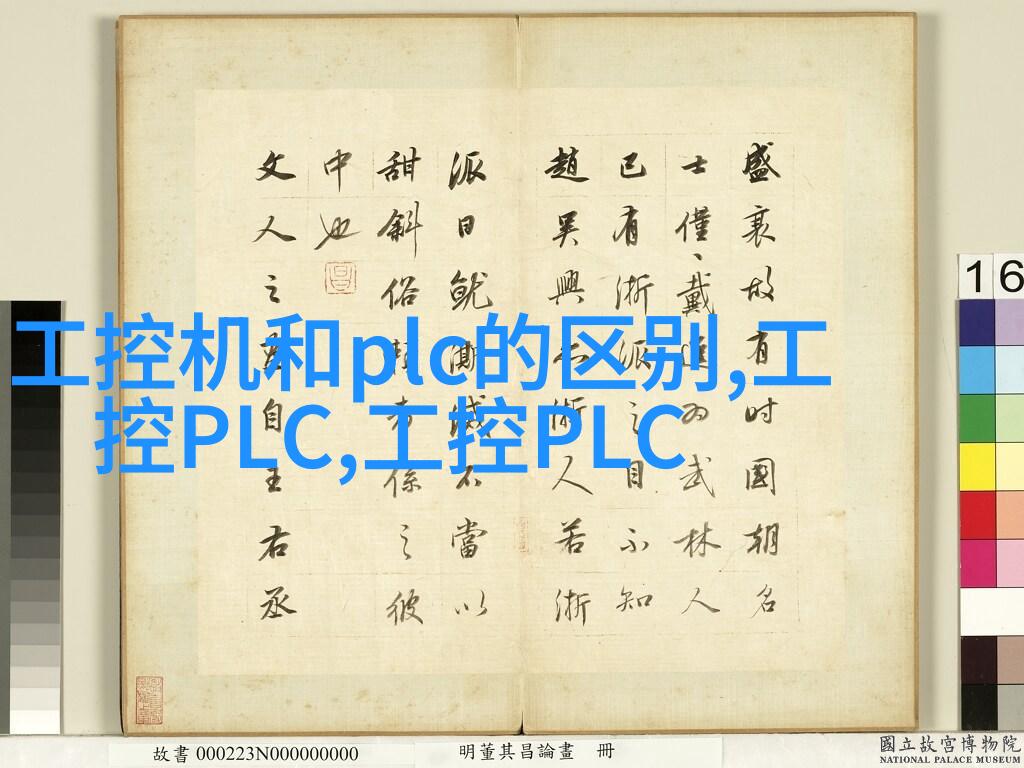 工控机和plc的区别,工
控PLC,工控PLC
盛衰故有时國朝名
士僅戴進为武林人
已有浙派之目不知
趙吳興亦浙人若浙
派日就澌滅不當以
甜斜俗賴者係之彼
中也
文人之畫自王右丞
16
故書 000223N000000000
明董其昌論畫 冊
國立故宮博物院
NATIONAL PALACE MUSEUM